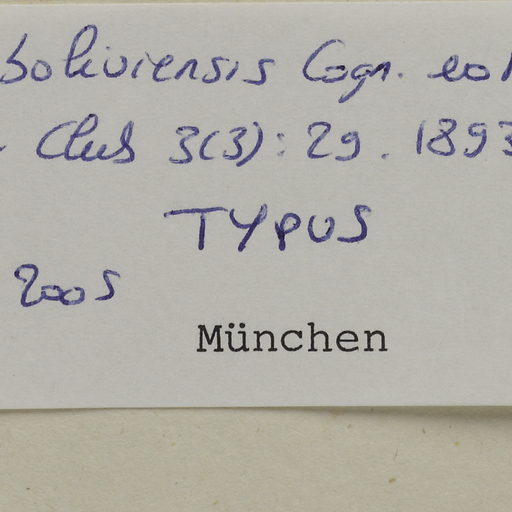 boliviensis Cogn.
Club 3(3): 29. 1893
TYPUS
2005
München